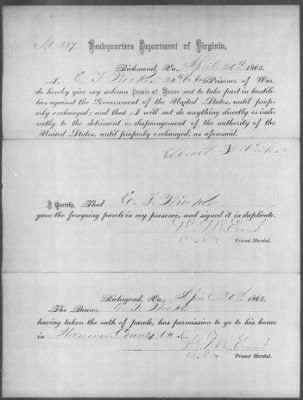 No 217 Headquarters Department of Virginia,
Richmond, Va., April 20th 1865.
I, E. F. Prisoner of War,
do hereby give my solemn Parole of Honor not to take part in hostili-
ties against the Government of the United States, until prop-
erly exchanged; and that I will not do anything directly or indi-
rectly to the detriment or disparagement of the authority of
the United States, until properly exchanged, as aforesaid.
I Certify, That E. F.
gave the foregoing parole in my presence, and signed it in duplicate.
Provost Marshal.
Richmond, Va., April 20th 1865.
The Bearer, E. F.
having taken the oath of parole, has permission to go to his home
in Hanover County Va
Provost Marshal.